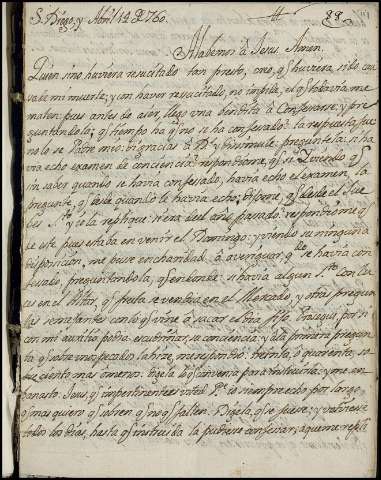 S. Diego, y Abril 12 de 760.
99.
Alabemos à Jesus Amen.
Quien sino huviera resucitado tan presto, creo, qe huviera sido con
vale mi muerte; y con haver resucitado, no impide, el qe todavia me
maten pues antes de aier, llego una bendita à Confesarse, y pre
guntandola; qe tiempo ha qe no se ha confesado? la respuesta fue
no lo se Padre mio: di gracias à Ds y bolviendole, preguntela: si ha
via echo examen de conciencia? respondiome, qe si. Diciendo qe
sin saber quando se havia confesado, havia echo el examen, la
pregunte, qe desde quando le havia echo; dijome, qe desde el Jue
bes Sto y io la replique: si era del año pasado: respondiome qe
de este pues estaba en venir el Domingo: y viendo su ninguna
disposicion, me puse en charidad à averiguar, qdo se havia con
fesado, preguntandola, qe en donde: si havia algun Sto con lu
ces en el Altar, qe fruta se vendia en el Mercado, y otras pregun
tas semejantes con lo qe vine à sacar el dia fijo. Pasè por si
con mi auxilio podia escudriñar su conciencia; y à la primera pregun
ta qe sobre unos pecados la hize, me respondiò: treinta, ò quarenta, so
bre ciento mas ò menos. Dijela lo qe convenia para instruirla; y me en
banasto Jesus, qe impertinente es usted Pe io siempre echo por largo,
qe mas quiero qe sobren, qe no qe falten. Dijela, qe se fuese; y viniese
todos los dias, hasta qe instruida la pudiese confesar; à que me repli